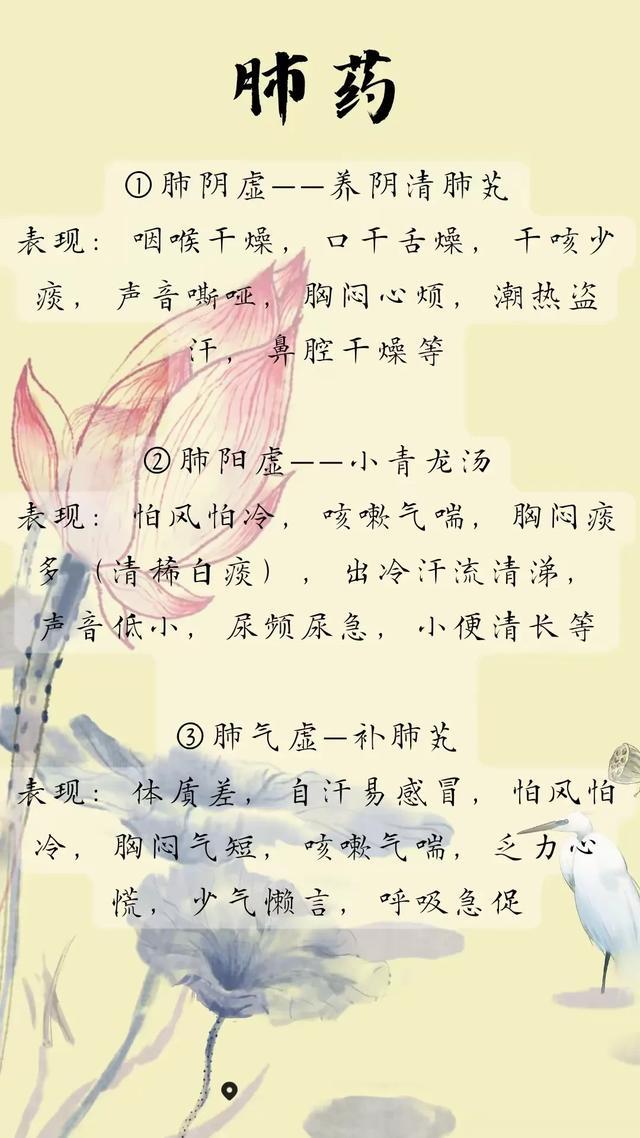 肺药
①肺阴虚——养阴清肺芄
表现：咽喉干燥，口干舌燥，干咳少
痰，声音嘶哑，胸闷心烦，潮热盗
汗，鼻腔干燥等
②肺阳虚——小青龙汤
表现：怕风怕冷，咳嗽气喘，胸闷痰
多（清稀白痰），出冷汗流清涕，
声音低小，尿频尿急，小便清长等
③肺气虚—补肺芄
表现：体质差，自汗易感冒，怕风怕
冷，胸闷气短，咳嗽气喘，乏力心
慌，少气懒言，呼吸急促